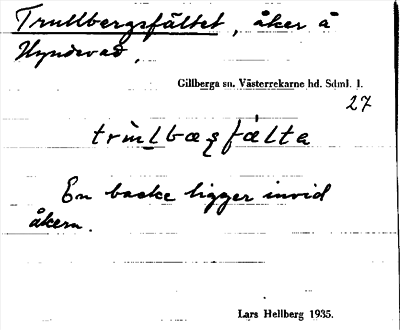 Trullbergsfältet, åker å
Hyndevad.
Gillberga sn. Västerrekarne hd. Sdml. 1.
27
En backe ligger invid
åkern.
Lars Hellberg 1935.